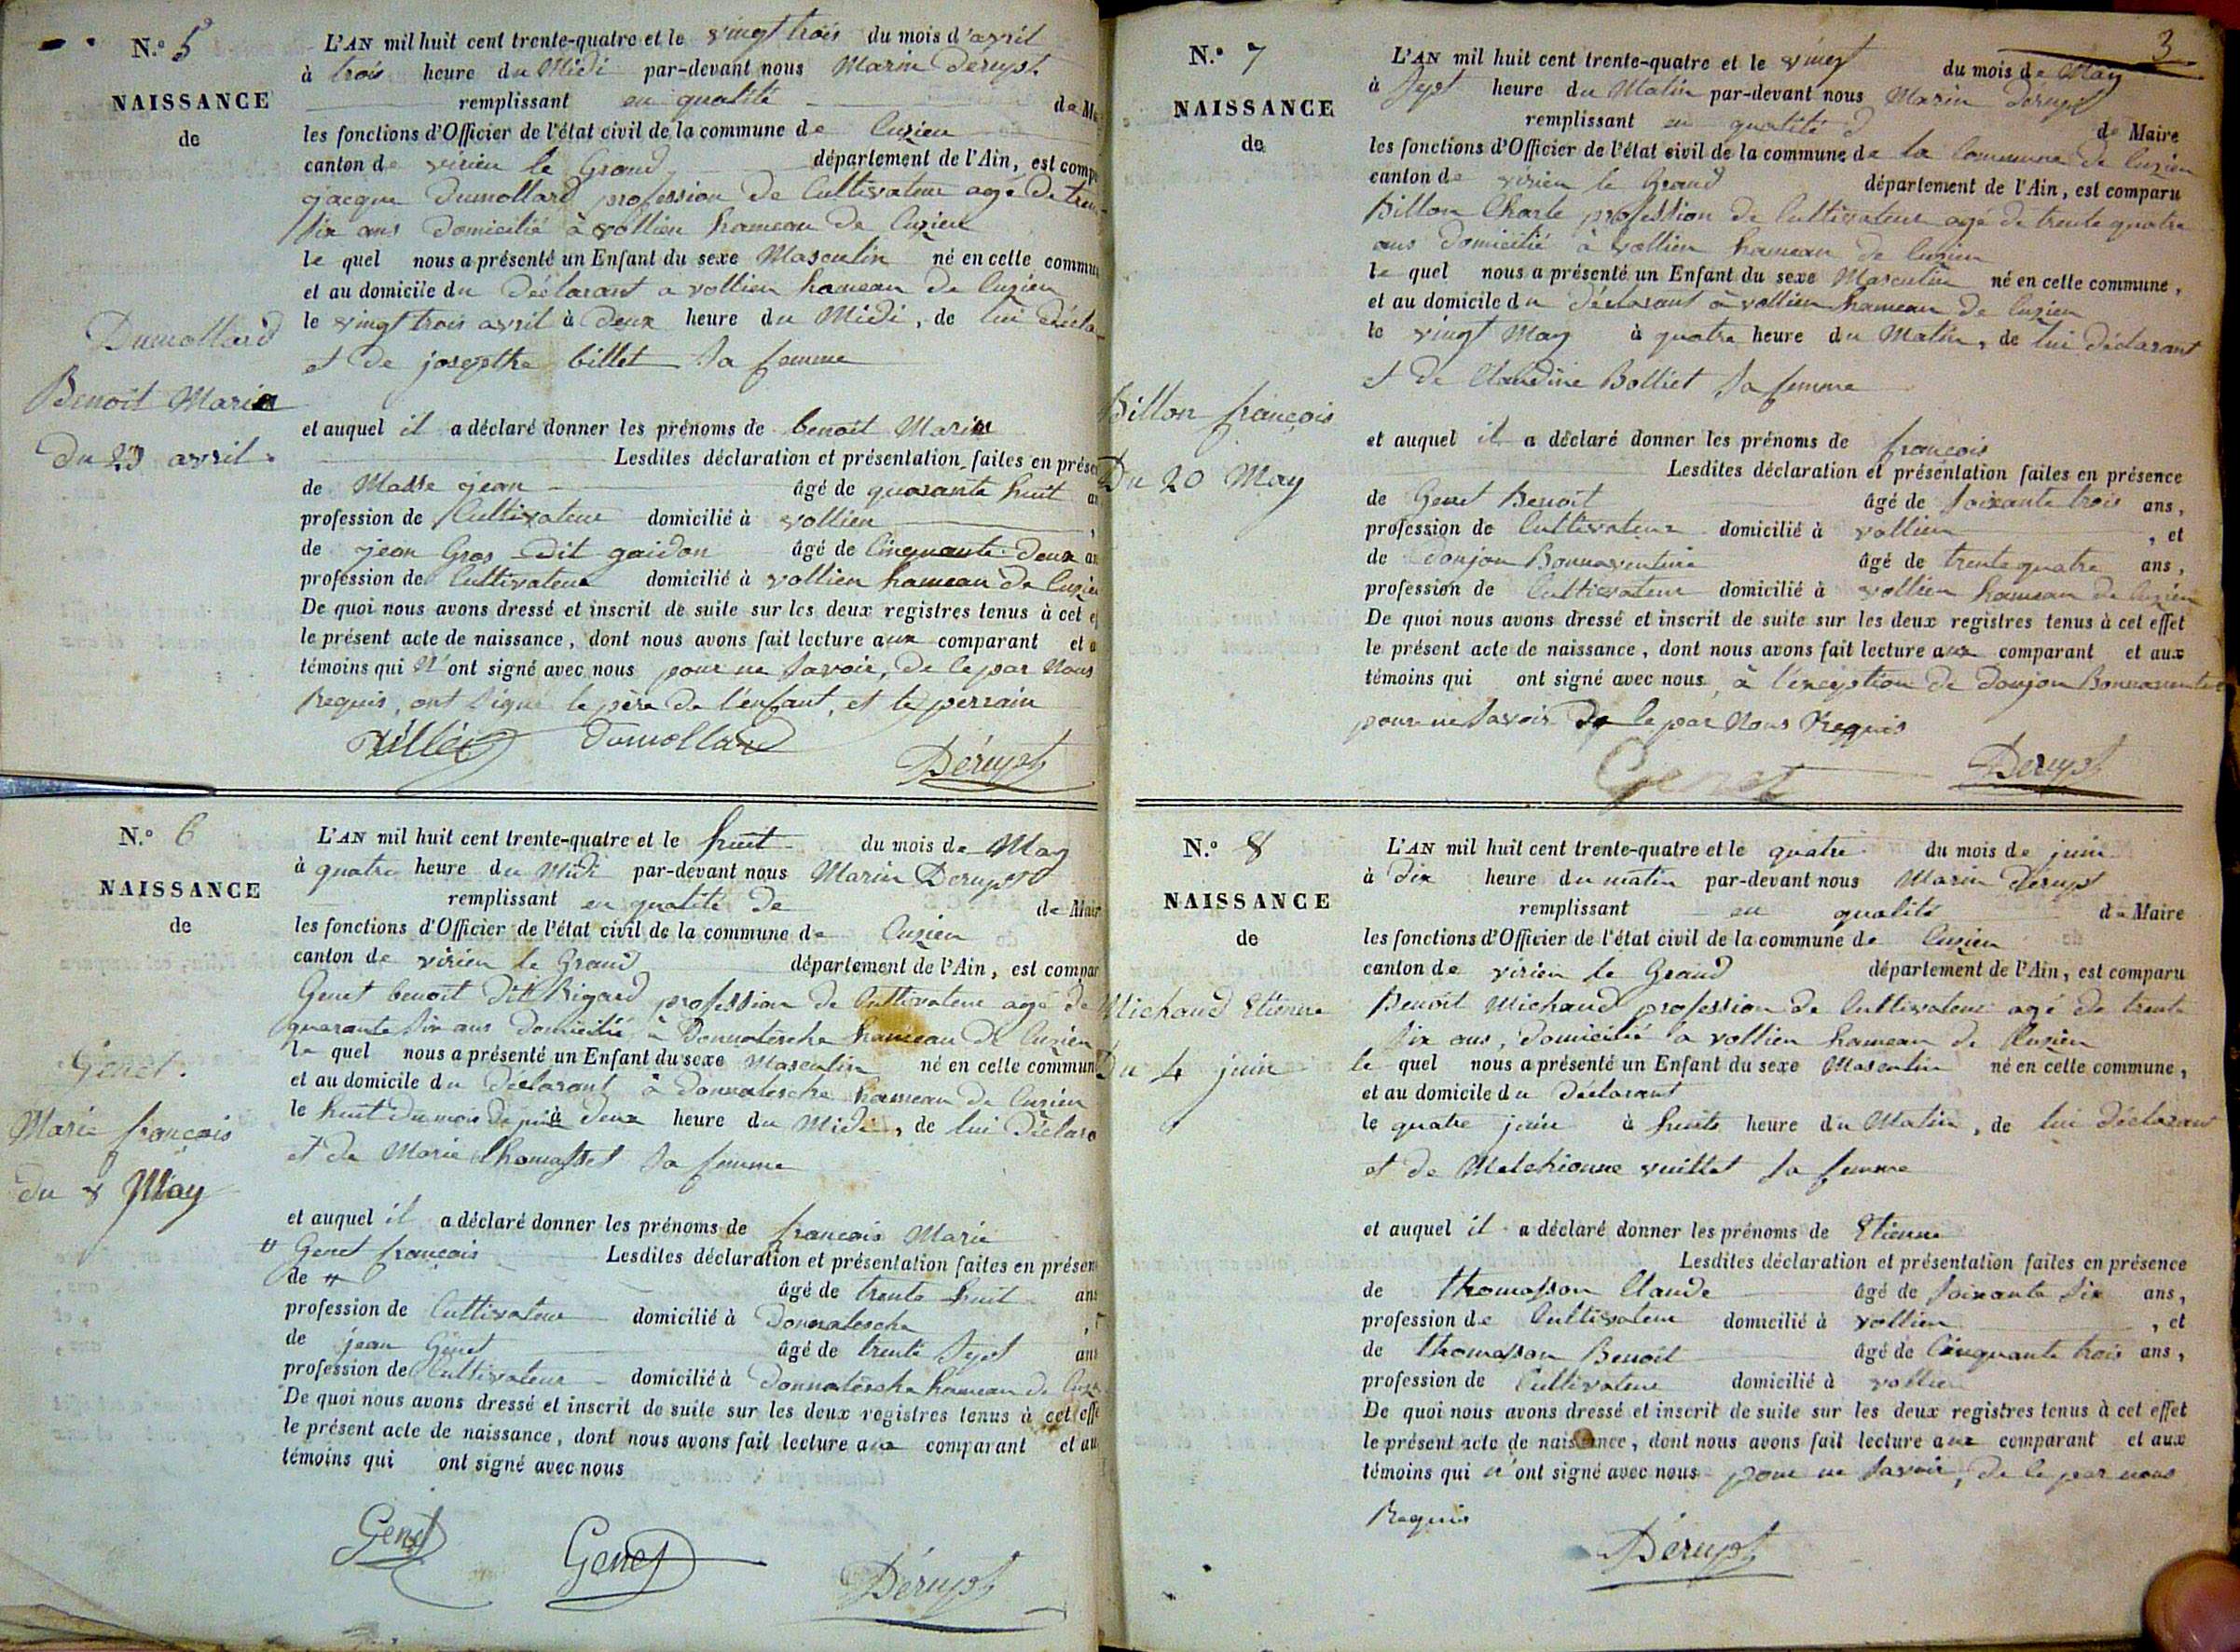 N.º 5
NAISSANCE
de
Dumollard
Benoit Marin
Du 23 avril.
L'AN mil huit cent trente-quatre et le vingt trois du mois d'avril
à trois heure du Midi par-devant nous Marin Derupt
remplissant en qualité de Ma
les fonctions d'Officier de l'état civil de la commune de Cuzieu
canton de virieu le Grand département de l'Ain, est comp
jacque Dumollard profession de Cultivateur agé de tren-
six ans Domicilié à vollien hameau de Cuzieu
le quel nous a présenté un Enfant du sexe Masculin né en celle commu
et au domicile du Déclarant a vollien hameau de Cuzieu
le vingt trois avril à Deux heure du Midi, de lui Décla
et de josepthe billet sa femme
et auquel il a déclaré donner les prénoms de benoit Marin
Lesdites déclaration et présentation faites en prése
de Masse jean âgé de quarante huit an
profession de Cultivateur domicilié à vollien
de jean Gros Dit gaidon âgé de Cinquante Deux an
profession de Cultivateur domicilié à vollien hameau de Cuzieu
De quoi nous avons dressé et inscrit de suite sur les deux registres tenus à cet e
le présent acte de naissance, dont nous avons fait lecture aux comparant et a
témoins qui N'ont signé avec nous pour ne savoir, de le par Nous
Requis, ont signé le père de l'enfant, et le perrain
Dumollard
Dérupt
N.º 6
NAISSANCE
de
Genet.
Marie françois
du 8 May
L'AN mil huit cent trente-quatre et le huit du mois de May
à quatre heure du Midi par-devant nous Marin Derupt
remplissant en qualité de de Mair
les fonctions d'Officier de l'état civil de la commune de Cuzieu
canton de virieu le Grand département de l'Ain, est compar
Genet benoit Dit Rigard profession de Cultivateur agé de
quarante six ans Domicilié à Donnatesche hameau de Cuzieu
le quel nous a présenté un Enfant du sexe Masculin né en celle commun
et au domicile du Déclarant à Donnatesche hameau de Cuzieu
le huit du mois de à deux heure du Midi, de lui Déclara
et de Marie thomasset sa femme
et auquel il a déclaré donner les prénoms de françois Marie
" Genet françois Lesdites déclaration et présentation faites en présen
de " âgé de trente huit ans
profession de Cultivateur domicilié à Donnatesche
de jean Genet âgé de trente sept ans
profession de Cultivateur domicilié à Donnatesche hameau de Cuz
De quoi nous avons dressé et inscrit de suite sur les deux registres tenus à cet effe
le présent acte de naissance, dont nous avons fait lecture aux comparant et au
témoins qui ont signé avec nous
Genet
Genet
Dérupt
3
N.º 7
NAISSANCE
de
Billon françois
Du 20 May
L'AN mil huit cent trente-quatre et le vingt du mois de May
à Sept heure du Matin par-devant nous Marin Derupt
remplissant en qualité d de Maire
les fonctions d'Officier de l'état civil de la commune de la Commune de Cuzieu
canton de virieu le Grand département de l'Ain, est comparu
Billon Charle profession de Cultivateur agé de trente quatre
ans Domicilié à vollien hameau de Cuzieu
le quel nous a présenté un Enfant du sexe Masculin né en celle commune,
et au domicile du Déclarant à vollien hameau de Cuzieu
le vingt May à quatre heure du Matin, de lui Déclarant
et de Claudine Bolliet sa femme
et auquel il a déclaré donner les prénoms de françois
Lesdites déclaration et présentation faites en présence
de Genet Benoit âgé de soixante trois ans,
profession de Cultivateur domicilié à vollien, et
de Donjon Bonnaventure âgé de trente quatre ans,
profession de Cultivateur domicilié à vollien hameau de Cuzieu
De quoi nous avons dressé et inscrit de suite sur les deux registres tenus à cet effet
le présent acte de naissance, dont nous avons fait lecture aux comparant et aux
témoins qui ont signé avec nous, à l'exeption de Donjon Bonnaventure
pour ne savoir De le par Nous Requis
Genet
Derupt
N.º 8
NAISSANCE
de
Michaud Etienne
Du 4 juin
L'AN mil huit cent trente-quatre et le quatre du mois de juin
à Dix heure du matin par-devant nous Marin Derupt
remplissant en qualité de Maire
les fonctions d'Officier de l'état civil de la commune de Cuzieu
canton de virieu le Grand département de l'Ain, est comparu
Benoit Michaud profession de Cultivateur agé de trente
six ans, domicilié a vollien hameau de Cuzieu
le quel nous a présenté un Enfant du sexe Masculin né en celle commune,
et au domicile du Déclarant
le quatre juin à huits heure du Matin, de lui Déclarant
et de Melchionne vuillet sa femme
et auquel il a déclaré donner les prénoms de Etienne
Lesdites déclaration et présentation faites en présence
de thomasson Claude âgé de soixante six ans,
profession de Cultivateur domicilié à vollien, et
de thomasson Benoit âgé de Cinquante trois ans,
profession de Cultivateur domicilié à vollien
De quoi nous avons dressé et inscrit de suite sur les deux registres tenus à cet effet
le présent acte de naissance, dont nous avons fait lecture aux comparant et aux
témoins qui n'ont signé avec nous pour ne savoir, de le par nous
Requis
Dérupt